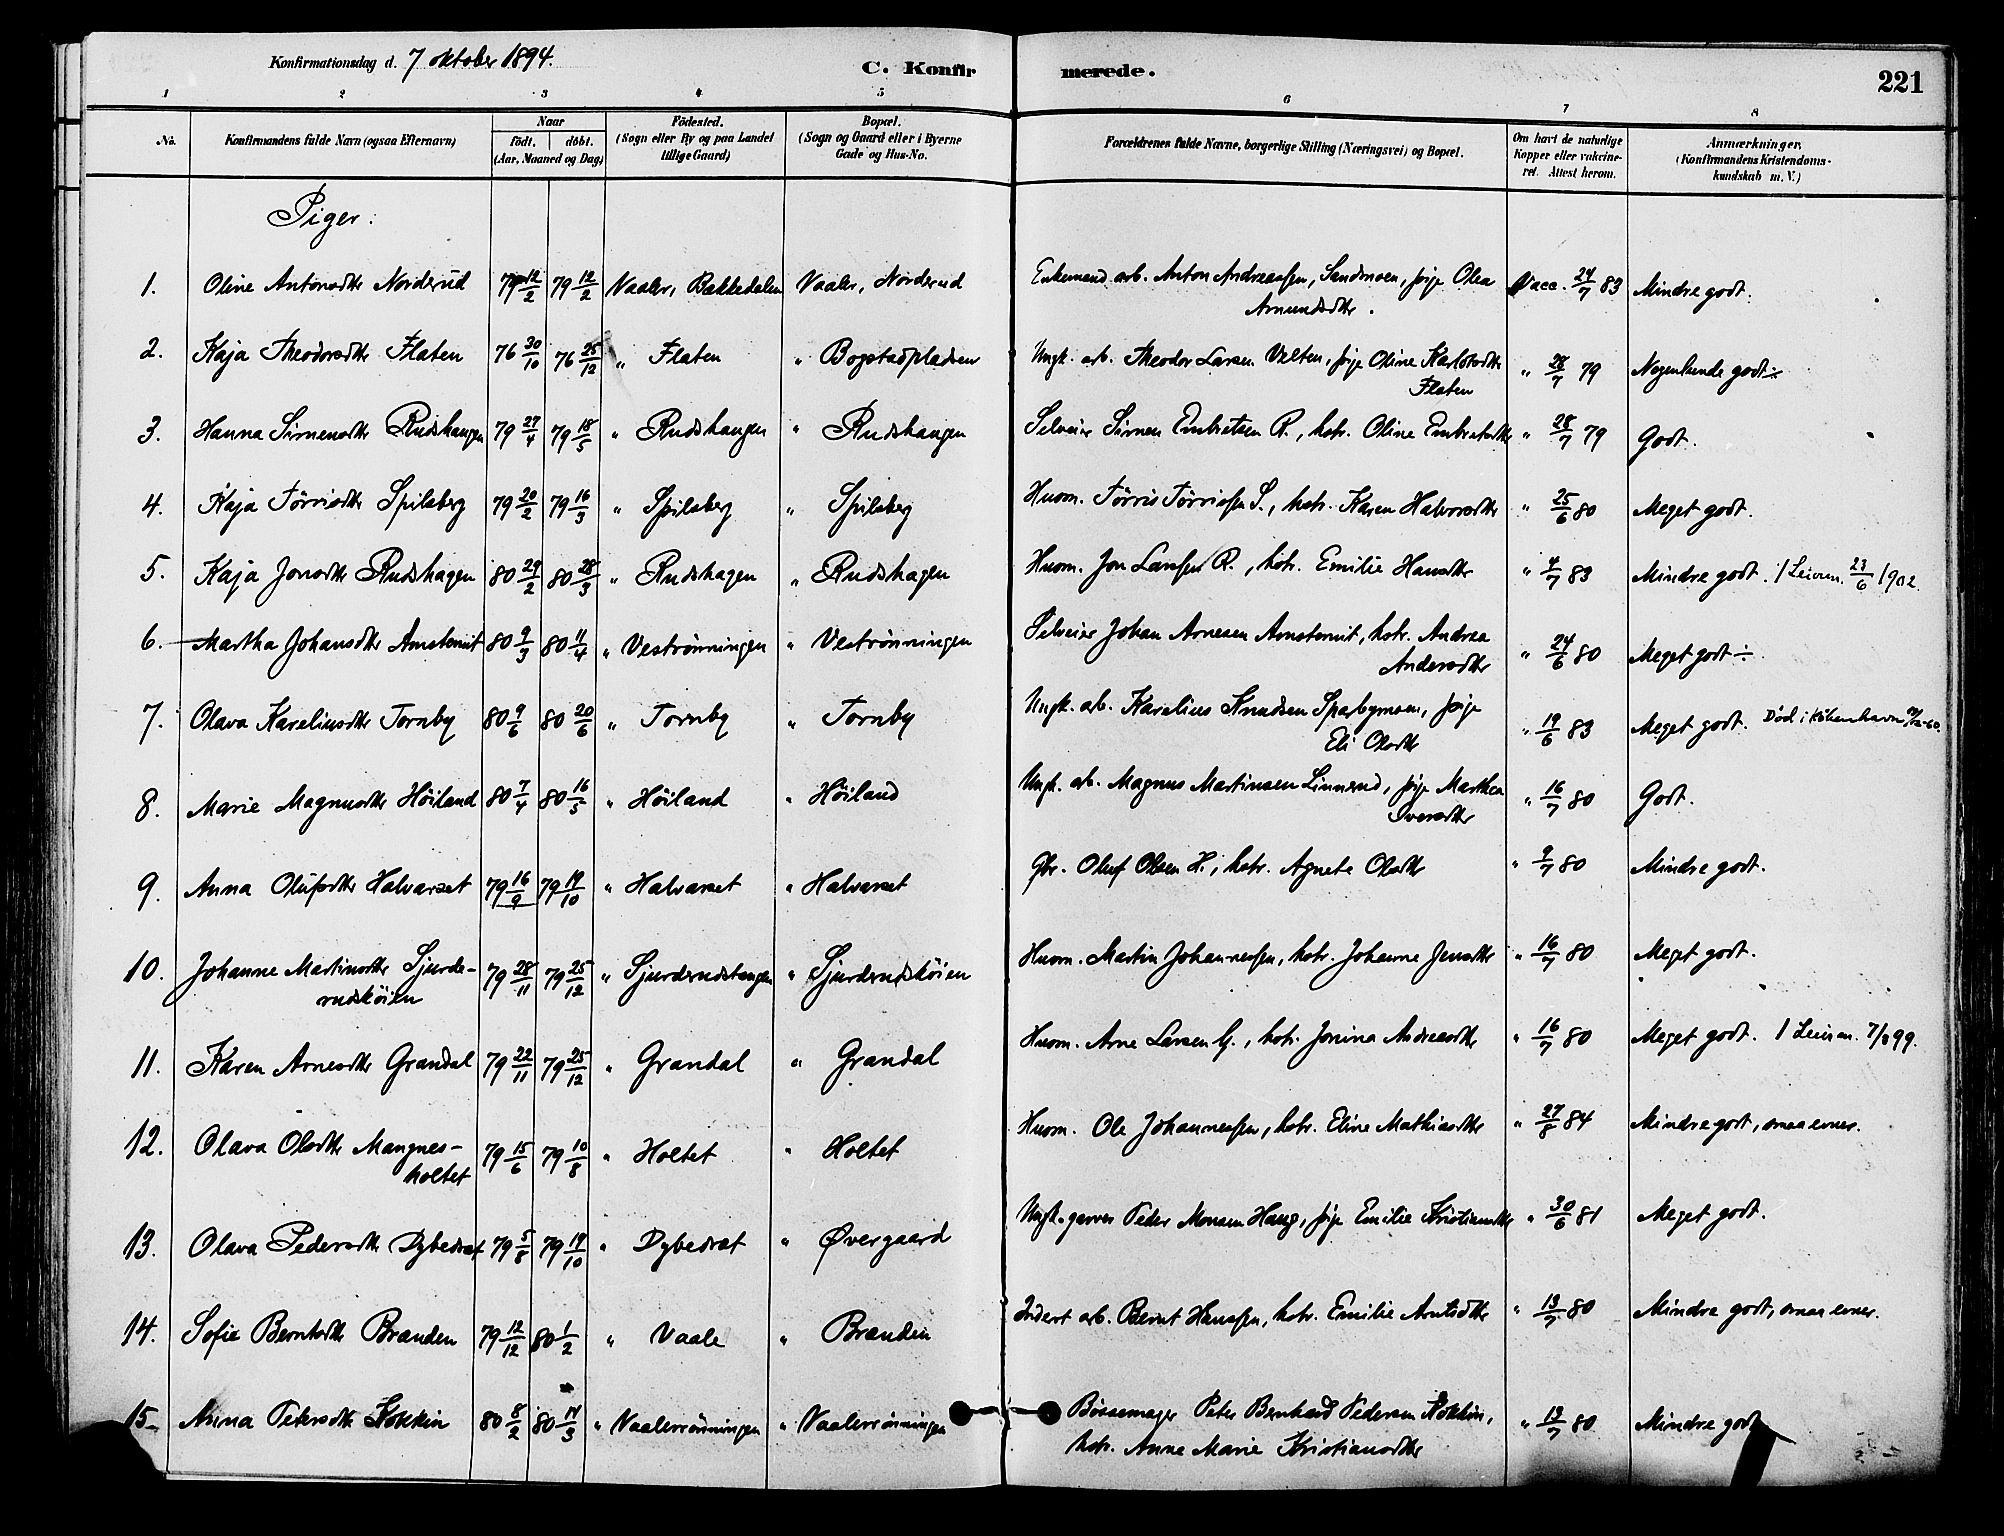 Konfirmationsdag d. 7 oktober 1894.
C. Konfirmerede.
221
1 2 3 4 5 6 7 8
No. Konfirmandens fulde Navn (ogsaa Efternavn) Naar födt. döbt. (Aar, Maaned og Dag) Födested. (Sogn eller By og paa Landet tillige Gaard) Bopæl. (Sogn og Gaard eller i Byerne Gade og Hus-No. Forældrenes fulde Navne, borgerlige Stilling (Næringsvei) og Bopæl. Om havt de naturlige Kopper eller vakcineret. Attest herom. Anmærkninger. (Konfirmandens Kristendomskundskab m. V.)
Piger:
1. Oline Antonsdtr Norderud 79 12/2 79 12/2 Vaaler, Bakkedalen Vaaler, Norderud Enkemand arb. Anton Andreassen, Sandmoen, pige Olea Vacc. 24/7 83 Mindre godt.
Amundsdtr.
2. Kaja Theodorsdtr Flaten 76 30/10 76 25/12 " Flaten " Bogstadpladsen Ungk. arb. Theodor Larsen Velten, pige Oline Karlstsdtr " 28/7 79 Nogenlunde godt ÷
Flaten
3. Hanna Simensdtr Rudshaugen 79 27/4 79 18/5 " Rudshaugen " Rudshaugen Selveier Simen Embretsen R., hstr. Oline Embretsdtr " 28/7 79 Godt.
4. Kaja Törrisdtr Spilsberg 79 20/2 79 16/3 " Spilsberg " Spilsberg Husm. Törris Törrissen S., hstr. Karen Halvorsdtr " 25/6 80 Meget godt.
5. Kaja Jonsdtr Rudshagen 80 29/2 80 28/3 " Rudshagen " Rudshagen Husm. Jon Larssen R., hstr. Emilie Hansdtr " 4/7 83 Mindre godt. / Leievn. 23/6 1902.
6. Martha Johansdtr Arnstenvit 80 9/3 80 11/4 " Vestrønningen " Vestrønningen Selveier Johan Arnesen Arnstenvit, hstr. Andrea " 24/6 80 Meget godt ÷
Andersdtr
7. Olava Kareliusdtr Tornby 80 9/6 80 20/6 " Tornby " Tornby Ungk. arb. Karelius Knudsen Sparbymoen, pige " 19/6 83 Meget godt. Død i København
Eli Olsdtr
8. Marie Magnusdtr Höiland 80 7/4 80 16/5 " Höiland " Höiland Ungk. arb. Magnus Martinsen Linnerud, pige Marthea " 16/7 80 Godt.
Iversdtr
9. Anna Olufsdtr Halvarset 79 16/9 79 19/10 " Halvarset " Halvarset Gbr. Oluf Olsen H., hstr. Agnete Olsdtr " 9/7 80 Mindre godt.
10. Johanne Martinsdtr Sjurde- 79 28/11 79 25/12 " Sjurderudstangen " Sjurderudskøien Husm. Martin Johannessen, hstr. Johanne Jensdtr " 16/7 80 Meget godt.
rudskøien
11. Karen Arnesdtr Grandal 79 22/11 79 25/12 " Grandal " Grandal Husm. Arne Larsen G., hstr. Jonina Andreasdtr " 16/7 80 Meget godt. / Leievn. 7/8 99.
12. Olava Olsdtr Mangnes- 79 15/6 79 10/8 " Holtet " Holtet Husm. Ole Johannessen, hstr. Eline Mathiasdtr " 27/8 84 Mindre godt, smaa evner.
holtet
13. Olava Pedersdtr Dybedræt 79 5/8 79 19/10 " Dybedræt " Øvergaard Ungk. garver Peder Monsen Haug, pige Emilie Kristiansdtr " 30/6 81 Meget godt.
14. Sofie Berntsdtr Branden 79 12/12 80 1/2 " Vaale " Branden Inderst arb. Bernt Hanssen, hstr. Emilie Arntsdtr " 13/7 80 Mindre godt, smaa evner.
15. Anna Petersdtr Kokkin 80 8/2 80 14/3 " Vaalerrönningen " Vaalerrönningen Bössemager Peter Bernhard Pedersen Kokkin, " 13/7 80 Mindre godt
hstr. Anne Marie Kristiansdtr